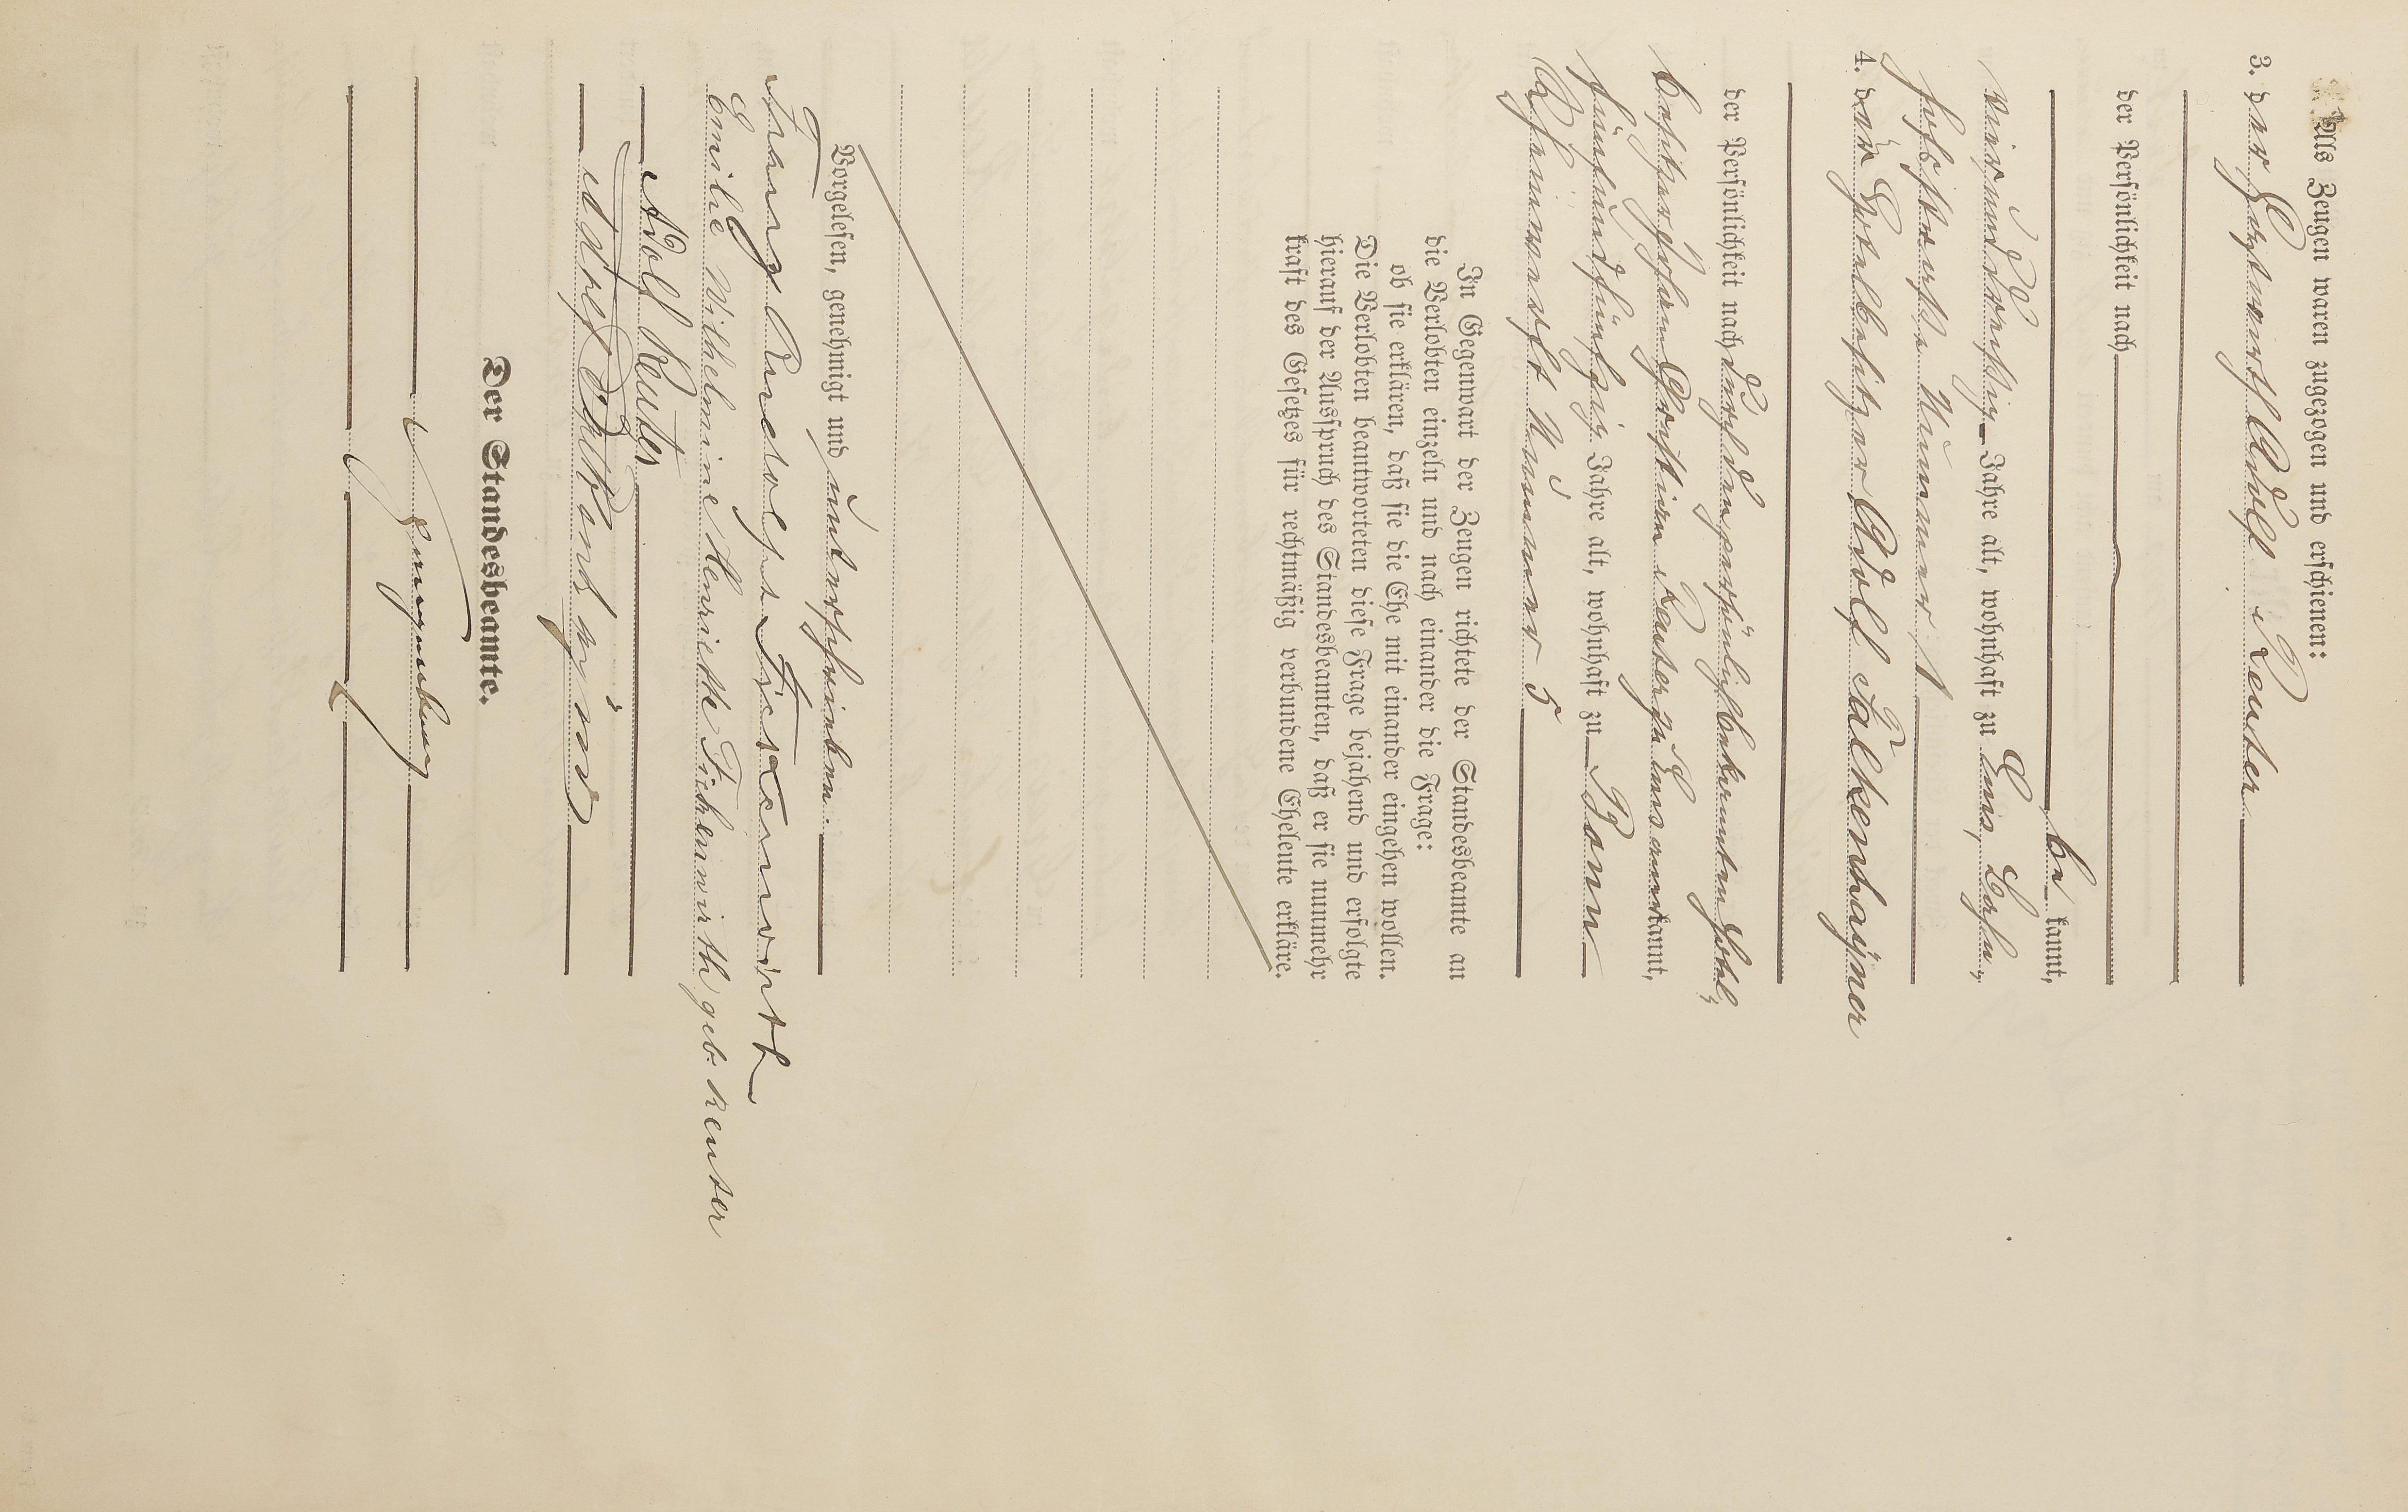 Als Zeugen waren zugezogen und erschienen:
3. der Gastwirth Adolf Reuter
der Persönlichkeit nach
be kannt,
vierunddreißig Jahre alt, wohnhaft zu Ems, Lahn-
Nummer 1
4. der Hotelbesitzer Adolf Falkenhayner
der Persönlichkeit nach durch den persönlich bekannten Hotel-
besitzersohn Christian Reuter zu Ems anerkannt,
fünfundfünfzig Jahre alt, wohnhaft zu Bonn
Rheinwerft Nummer 5
In Gegenwart der Zeugen richtete der Standesbeamte an
die Verlobten einzeln und nach einander die Frage:
ob sie erklären, daß sie die Ehe mit einander eingehen wollen.
Die Verlobten beantworteten diese Frage bejahend und erfolgte
hierauf der Ausspruch des Standesbeamten, daß er sie nunmehr
kraft des Gesetzes für rechtmäßig verbundene Eheleute erkläre.
Vorgelesen, genehmigt und unterschrieben.
Franz Rudolph Fickenwirth
Emilie Wilhelmine Henriette Fickenwirth geb. Reuter
Adolf Reuter
Adolf
Der Standesbeamte.